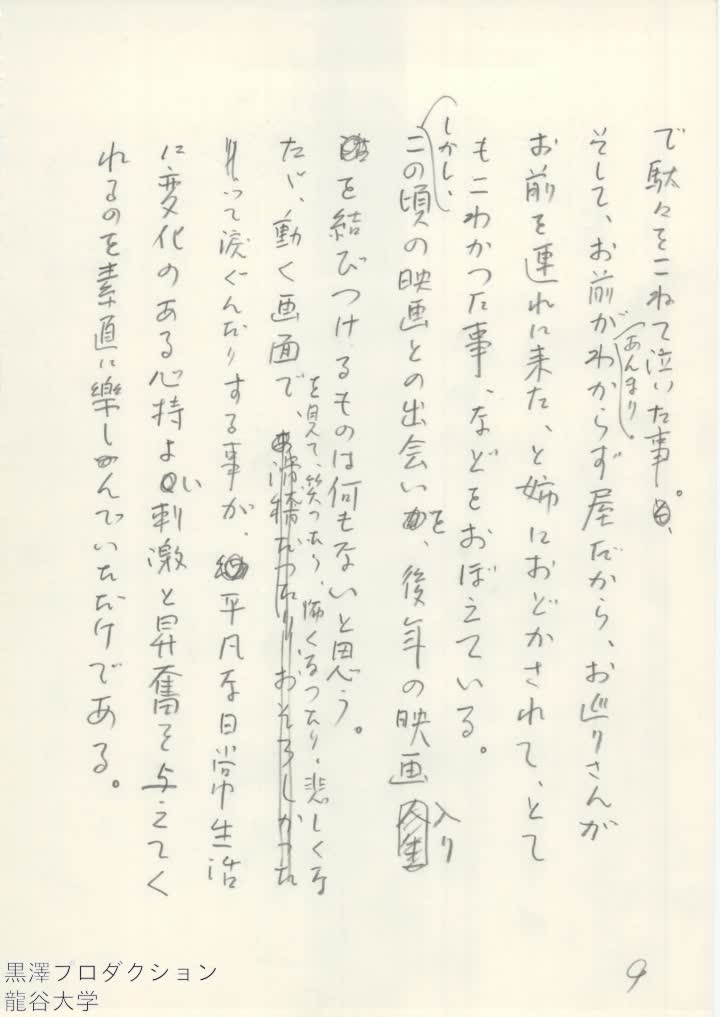 で駄々をこねて泣いた事。
そして、お前があんまりわからず屋だから、お巡りさんが
お前を連れに来た、と姉におどかされて、とて
もこわかつた事、などをおぼえている。
しかし、この頃の映画との出会いを、後年の映画入り
を結びつけるものは何もないと思う。
たゞ、動く画面を見て、笑つたり、怖くなつたり、悲しくな
つて涙ぐんだりする事が、平凡な日常生活
に変化のある心持よい刺激と昇奮を与えてく
れるのを素直に楽しんでいただけである。
9
黒澤プロダクション
龍谷大学